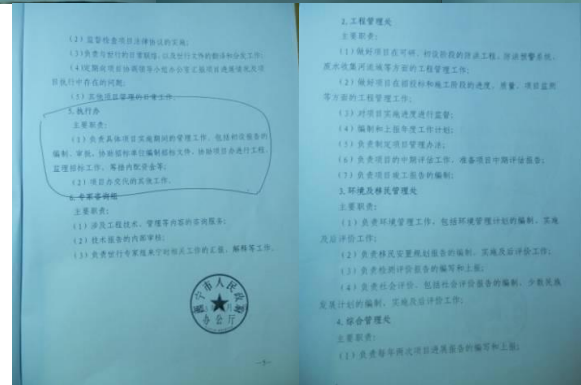 (2)监督检查项目法律协议的实施;
(3)负责与世行的日常联络,以及世行文件的翻译和分发工作;
(4)定期向项目协调领导小组办公室汇报项目进展情况及项
目执行中存在的问题;
(5)其他项目管理的日常工作。
5.执行办
主要职责:
(1)负责具体项目实施期间的管理工作,包括初设报告的
编制、审批,协助招标单位编制招标文件,协助项目办进行工程
监理招标工作,筹措内配资金等;
(2)项目办交代的其他工作。
6.专家咨询组
主要职责:
(1)涉及工程技术、管理等内容的咨询服务;
(2)技术报告的内部审核;
(3)负责世行专家组来宁的相关工作的汇报、解释等工作。
市人民政府
办公厅
-5-
2.工程管理处
主要职责:
(1)做好项目在可研、初设阶段的防洪工程、洪涝预警系统、
等方面的工程管理工作;
(2)做好项目在招投标和施工阶段的进度、质量、项目监理
等方面的工程管理工作;
(3)对项目实施进度进行监督;
(4)编制和上报年度工作计划;
(5)负责制定项目管理办法;
(6)负责项目的中期评估工作,准备项目中期评估报告;
(7)负责项目竣工报告的编制;
3.环境及移民管理处
主要职责:
(1)负责环境管理工作,包括环境管理计划的编制、实施
及后评价工作;
(2)负责移民安置规划报告的编制、实施及后评价工作;
(3)负责检测评价报告的编写和上报;
(4)负责社会评价,包括社会评价报告的编制,少数民族
发展计划的编制、实施及后评价工作;
4.综合管理处
主要职责:
(1)负责每年两次项目进展报告的编写和上报;